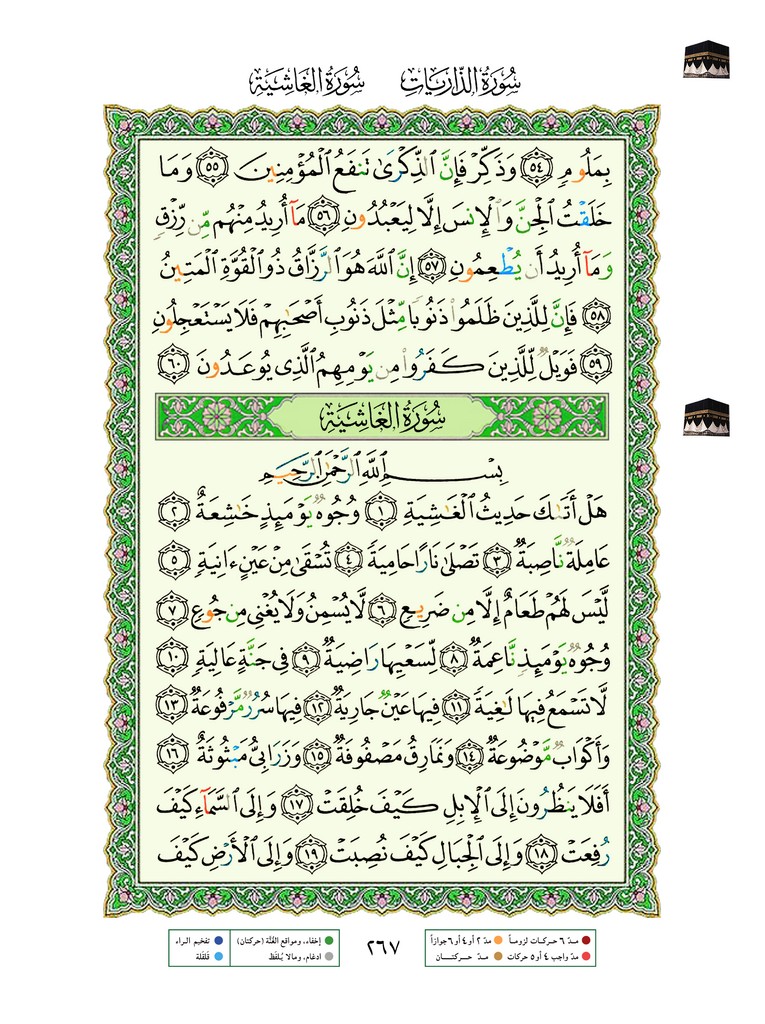 سُورَةُ الذَّارِيَات سُورَةُ الغَاشِيَة
بِمَلُومٍ ٥٤ وَذَكِّرْ فَإِنَّ ٱلذِّكْرَىٰ تَنفَعُ ٱلْمُؤْمِنِينَ ٥٥ وَمَا
خَلَقْتُ ٱلْجِنَّ وَٱلْإِنسَ إِلَّا لِيَعْبُدُونِ ٥٦ مَآ أُرِيدُ مِنْهُم مِّن رِّزْقٍ
وَمَآ أُرِيدُ أَن يُطْعِمُونِ ٥٧ إِنَّ ٱللَّهَ هُوَ ٱلرَّزَّاقُ ذُو ٱلْقُوَّةِ ٱلْمَتِينُ
٥٨ فَإِنَّ لِلَّذِينَ ظَلَمُوا۟ ذَنُوبًا مِّثْلَ ذَنُوبِ أَصْحَٰبِهِمْ فَلَا يَسْتَعْجِلُونِ
٥٩ فَوَيْلٌ لِّلَّذِينَ كَفَرُوا۟ مِن يَوْمِهِمُ ٱلَّذِى يُوعَدُونَ ٦٠
سُورَةُ الغَاشِيَة
بِسْمِ ٱللَّهِ ٱلرَّحْمَٰنِ ٱلرَّحِيمِ
هَلْ أَتَىٰكَ حَدِيثُ ٱلْغَٰشِيَةِ ١ وُجُوهٌ يَوْمَئِذٍ خَٰشِعَةٌ ٢
عَامِلَةٌ نَّاصِبَةٌ ٣ تَصْلَىٰ نَارًا حَامِيَةً ٤ تُسْقَىٰ مِنْ عَيْنٍ ءَانِيَةٍ ٥
لَّيْسَ لَهُمْ طَعَامٌ إِلَّا مِن ضَرِيعٍ ٦ لَّا يُسْمِنُ وَلَا يُغْنِى مِن جُوعٍ ٧
وُجُوهٌ يَوْمَئِذٍ نَّاعِمَةٌ ٨ لِّسَعْيِهَا رَاضِيَةٌ ٩ فِى جَنَّةٍ عَالِيَةٍ ١٠
لَّا تَسْمَعُ فِيهَا لَٰغِيَةً ١١ فِيهَا عَيْنٌ جَارِيَةٌ ١٢ فِيهَا سُرُرٌ مَّرْفُوعَةٌ ١٣
وَأَكْوَابٌ مَّوْضُوعَةٌ ١٤ وَنَمَارِقُ مَصْفُوفَةٌ ١٥ وَزَرَابِىُّ مَبْثُوثَةٌ ١٦
أَفَلَا يَنظُرُونَ إِلَى ٱلْإِبِلِ كَيْفَ خُلِقَتْ ١٧ وَإِلَى ٱلسَّمَآءِ كَيْفَ
رُفِعَتْ ١٨ وَإِلَى ٱلْجِبَالِ كَيْفَ نُصِبَتْ ١٩ وَإِلَى ٱلْأَرْضِ كَيْفَ
مدّ ٦ حركات لزوماً مدّ ٢ أو ٤ أو ٦ جوازاً
مدّ واجب ٤ أو ٥ حركات مدّ حركتان
٢٦٧
إخفاء، ومواقع الغُنَّة (حركتان) تفخيم الراء
ادغام، ومالا يُلفَظ قلقلة